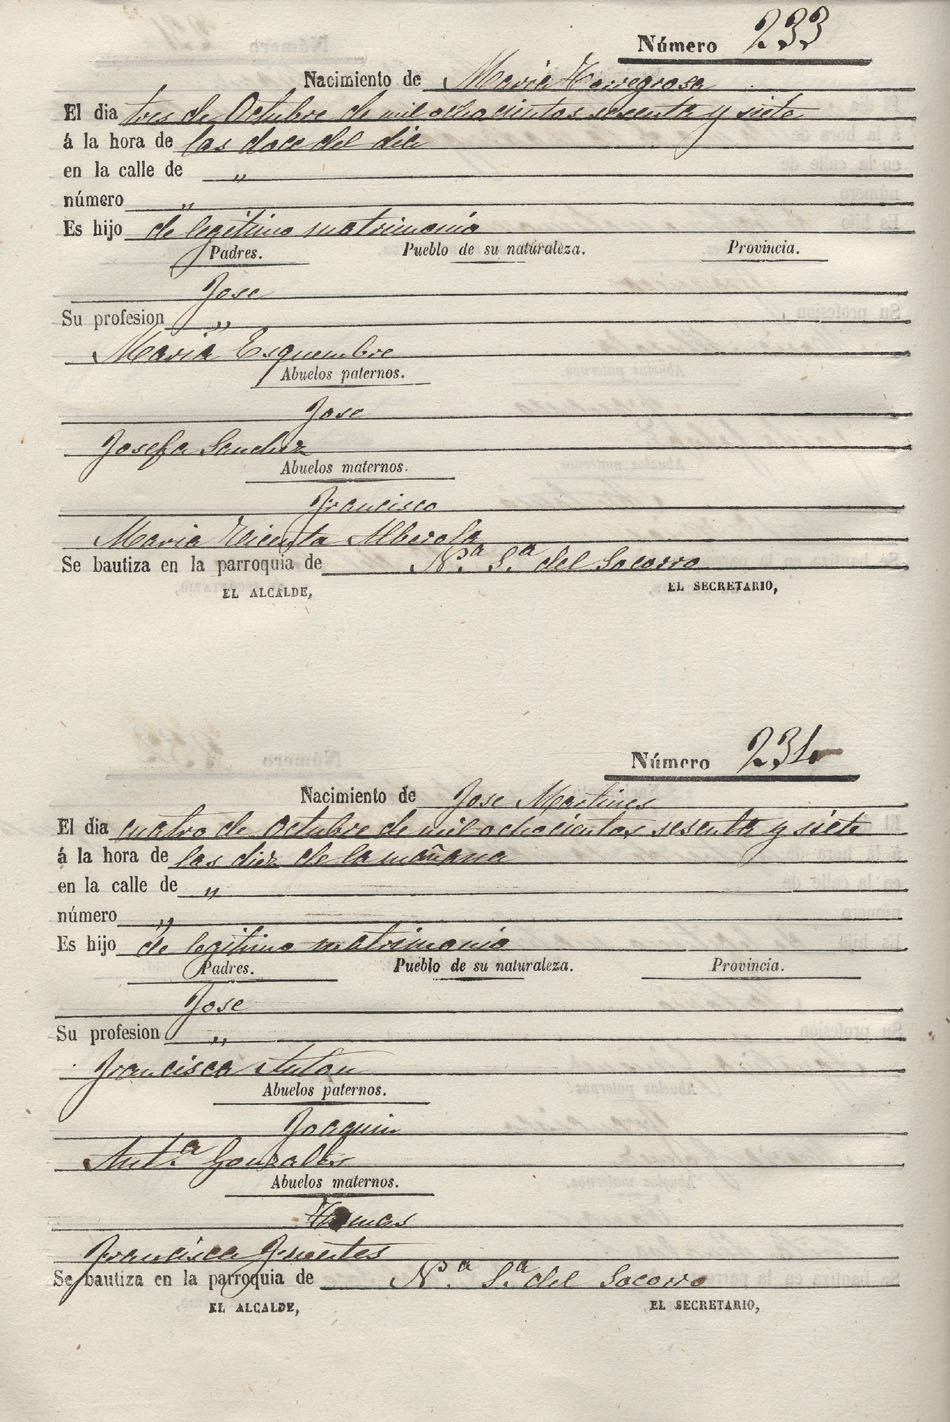 Número 233
Nacimiento de Maria Torregrosa
El dia tres de Octubre de mil ochocientos sesenta y siete
á la hora de las doce del dia
en la calle de "
número "
Es hijo de legitimo matrimonio
Padres. Pueblo de su naturaleza. Provincia.
Jose
Su profesion "
Maria Esquembre
Abuelos paternos.
Jose
Josefa Sanchez
Abuelos maternos.
Francisco
Maria Vicenta Alberola
Se bautiza en la parroquia de N.ª S.ª del Socorro
EL ALCALDE, EL SECRETARIO,
Número 234
Nacimiento de Jose Martines
El dia cuatro de Octubre de mil ochocientos sesenta y siete
á la hora de las diez de la mañana
en la calle de "
número "
Es hijo de legitimo matrimonio
Padres. Pueblo de su naturaleza. Provincia.
Jose
Su profesion "
Francisca Anton
Abuelos paternos.
Joaquin
Ant.ª Gonzalez
Abuelos maternos.
Tomas
Francisca Fuentes
Se bautiza en la parroquia de N.ª S.ª del Socorro
EL ALCALDE, EL SECRETARIO,